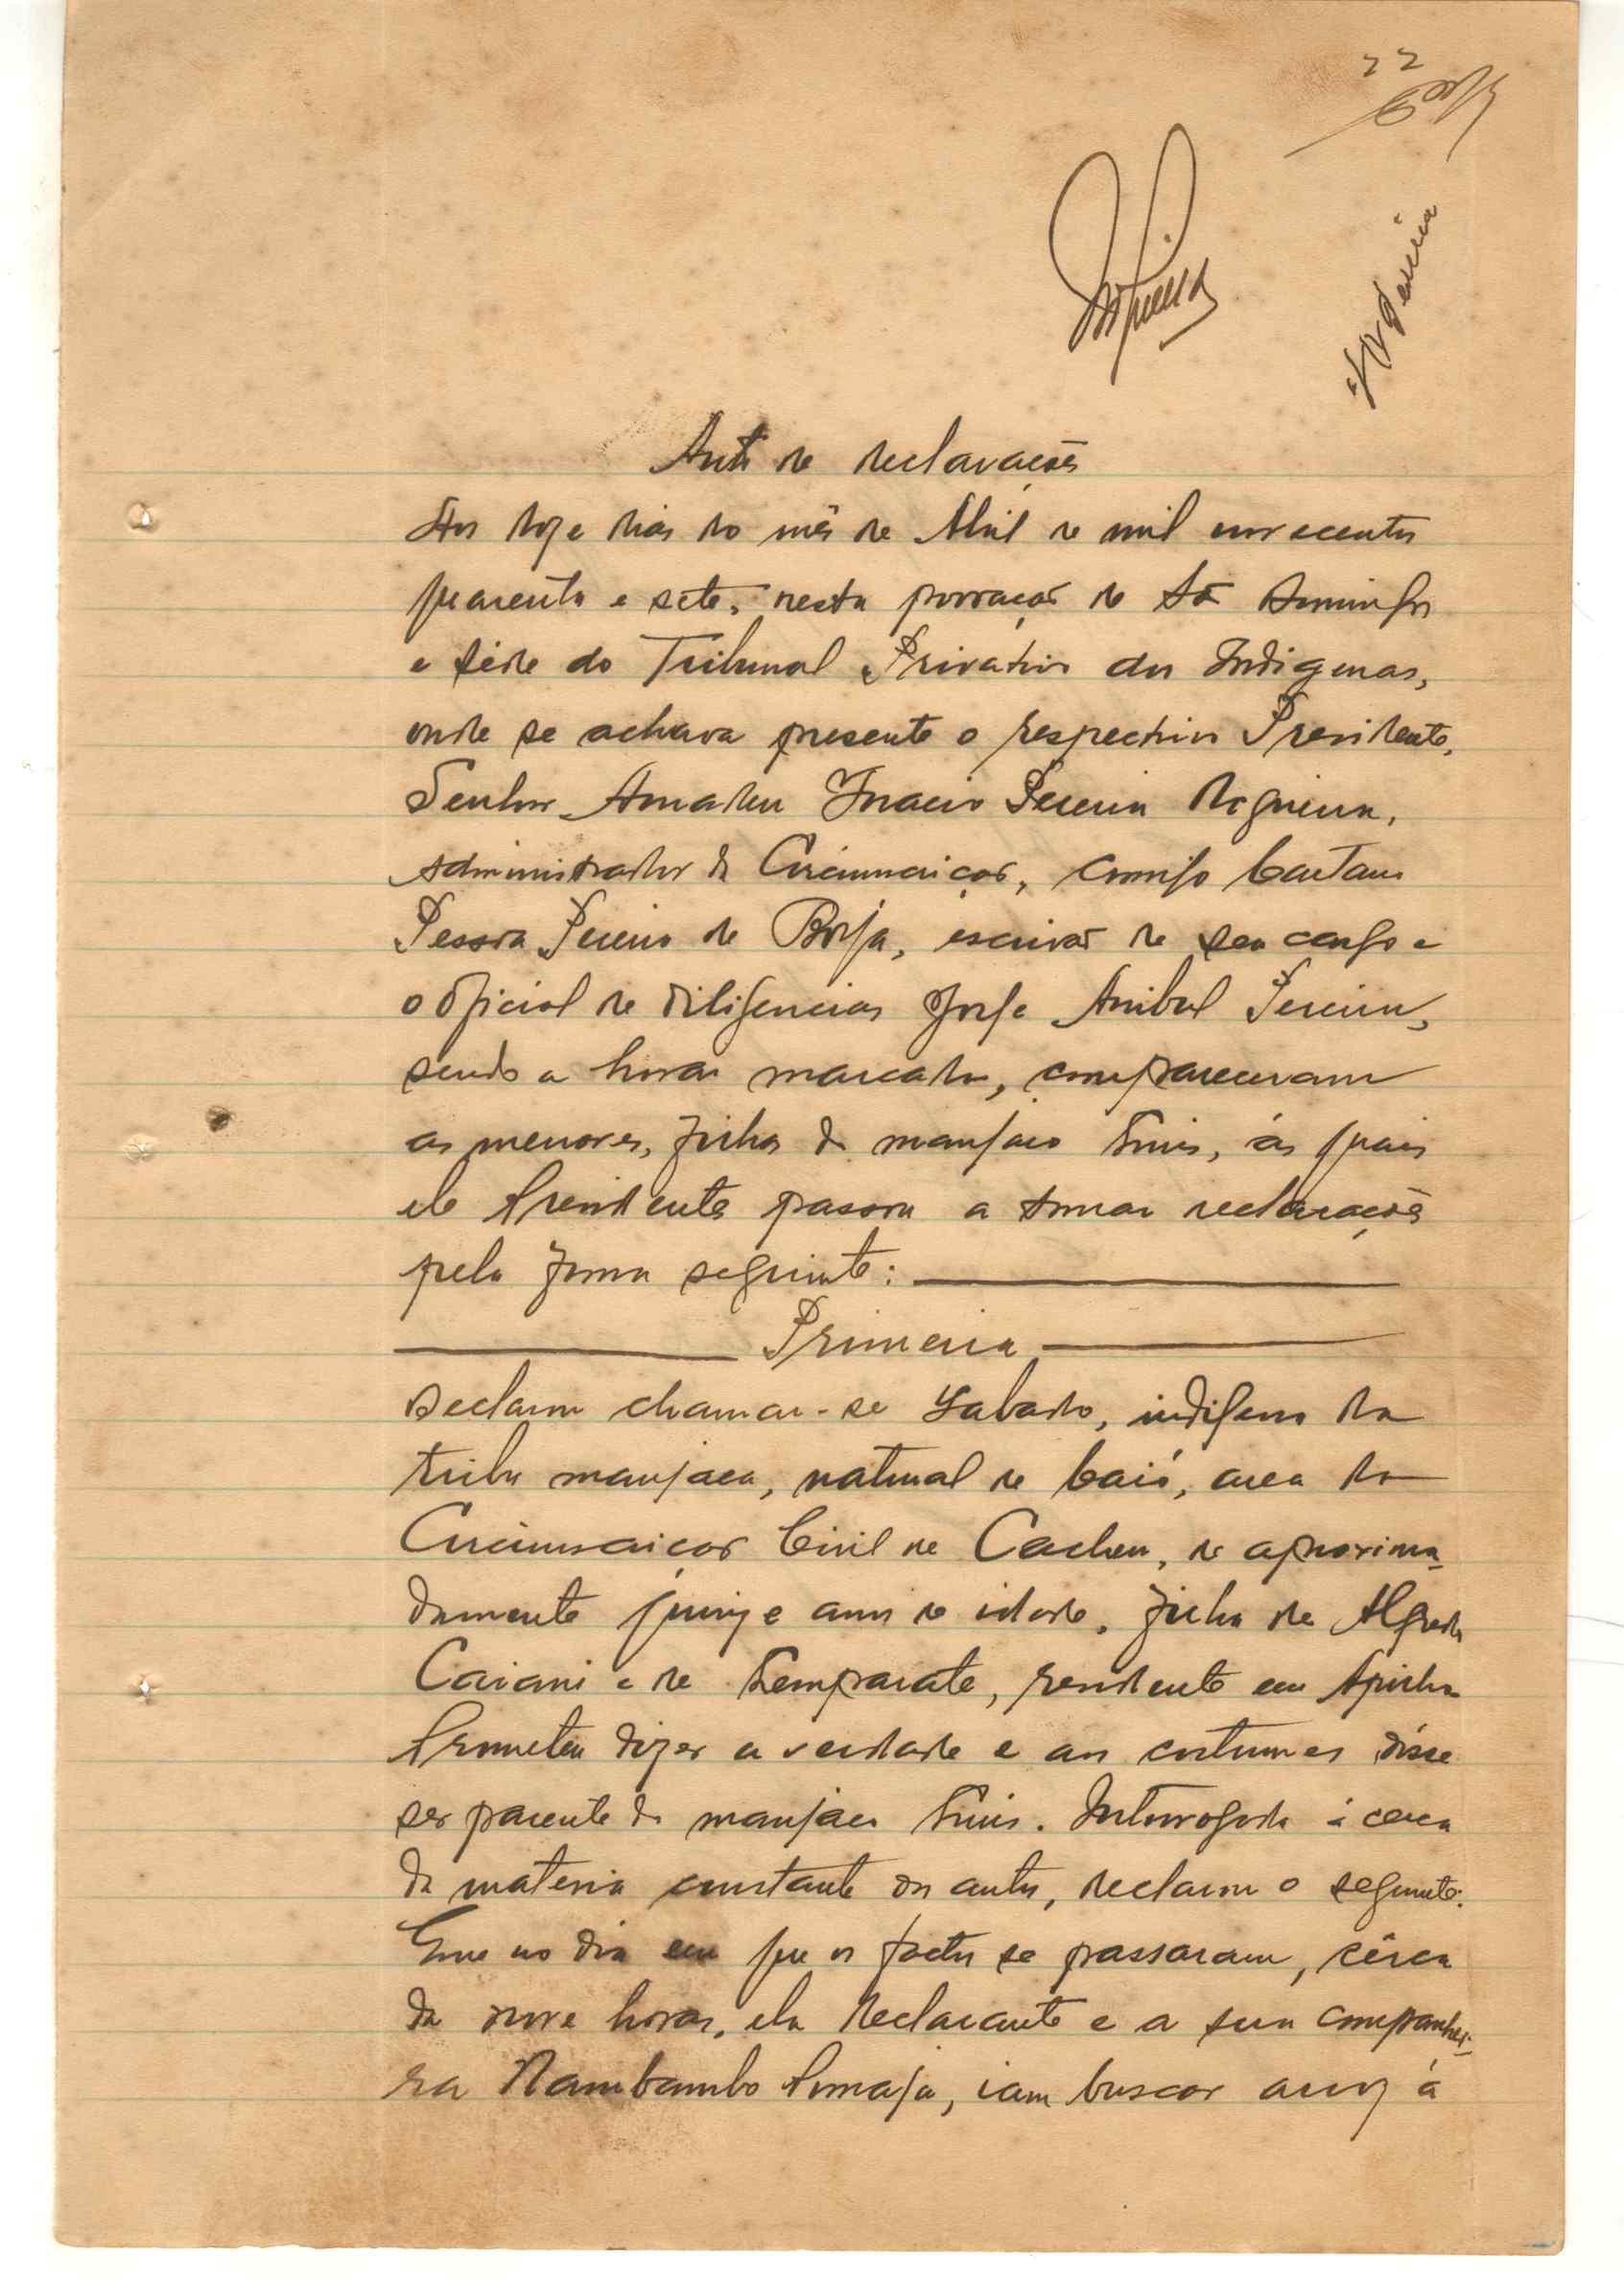 22
Auto de declarações
Aos doze dias do mês de Abril de mil novecentos
quarenta e sete, nesta povoação de São Domingos
e séde do Tribunal Privativo dos Indigenas,
onde se achava presente o respectivo Presidente,
Senhor Amadeu Inacio Pereira Nogueira,
administrador de Circunscrição, comigo Caetano
Pessoa Pereira de Borja, escrivão de seu cargo e
o oficial de diligencias Jorge Anibal Pereira,
sendo a hora marcada, compareceram
as menores, filhas do manjaco Luis, ás quais
ele Presidente passou a tomar declarações
pela forma seguinte:
Primeira
Declarou chamar-se Sabado, indigena da
tribu manjaca, natural de Caió, area da
Circunscrição Civil de Cacheu, de aproxima-
damente quinze anos de idade, filha de Alfredo
Caiani e de , residente em
Prometeu dizer a verdade e aos costumes disse
ser parente do manjaco Luis. Interrogada á cerca
da materia constante dos autos, declarou o seguinte:
Que no dia em que os factos se passaram, cêrca
da nove horas, ela declarante e a sua companhei-
ra Nambambo , iam buscar arroz á